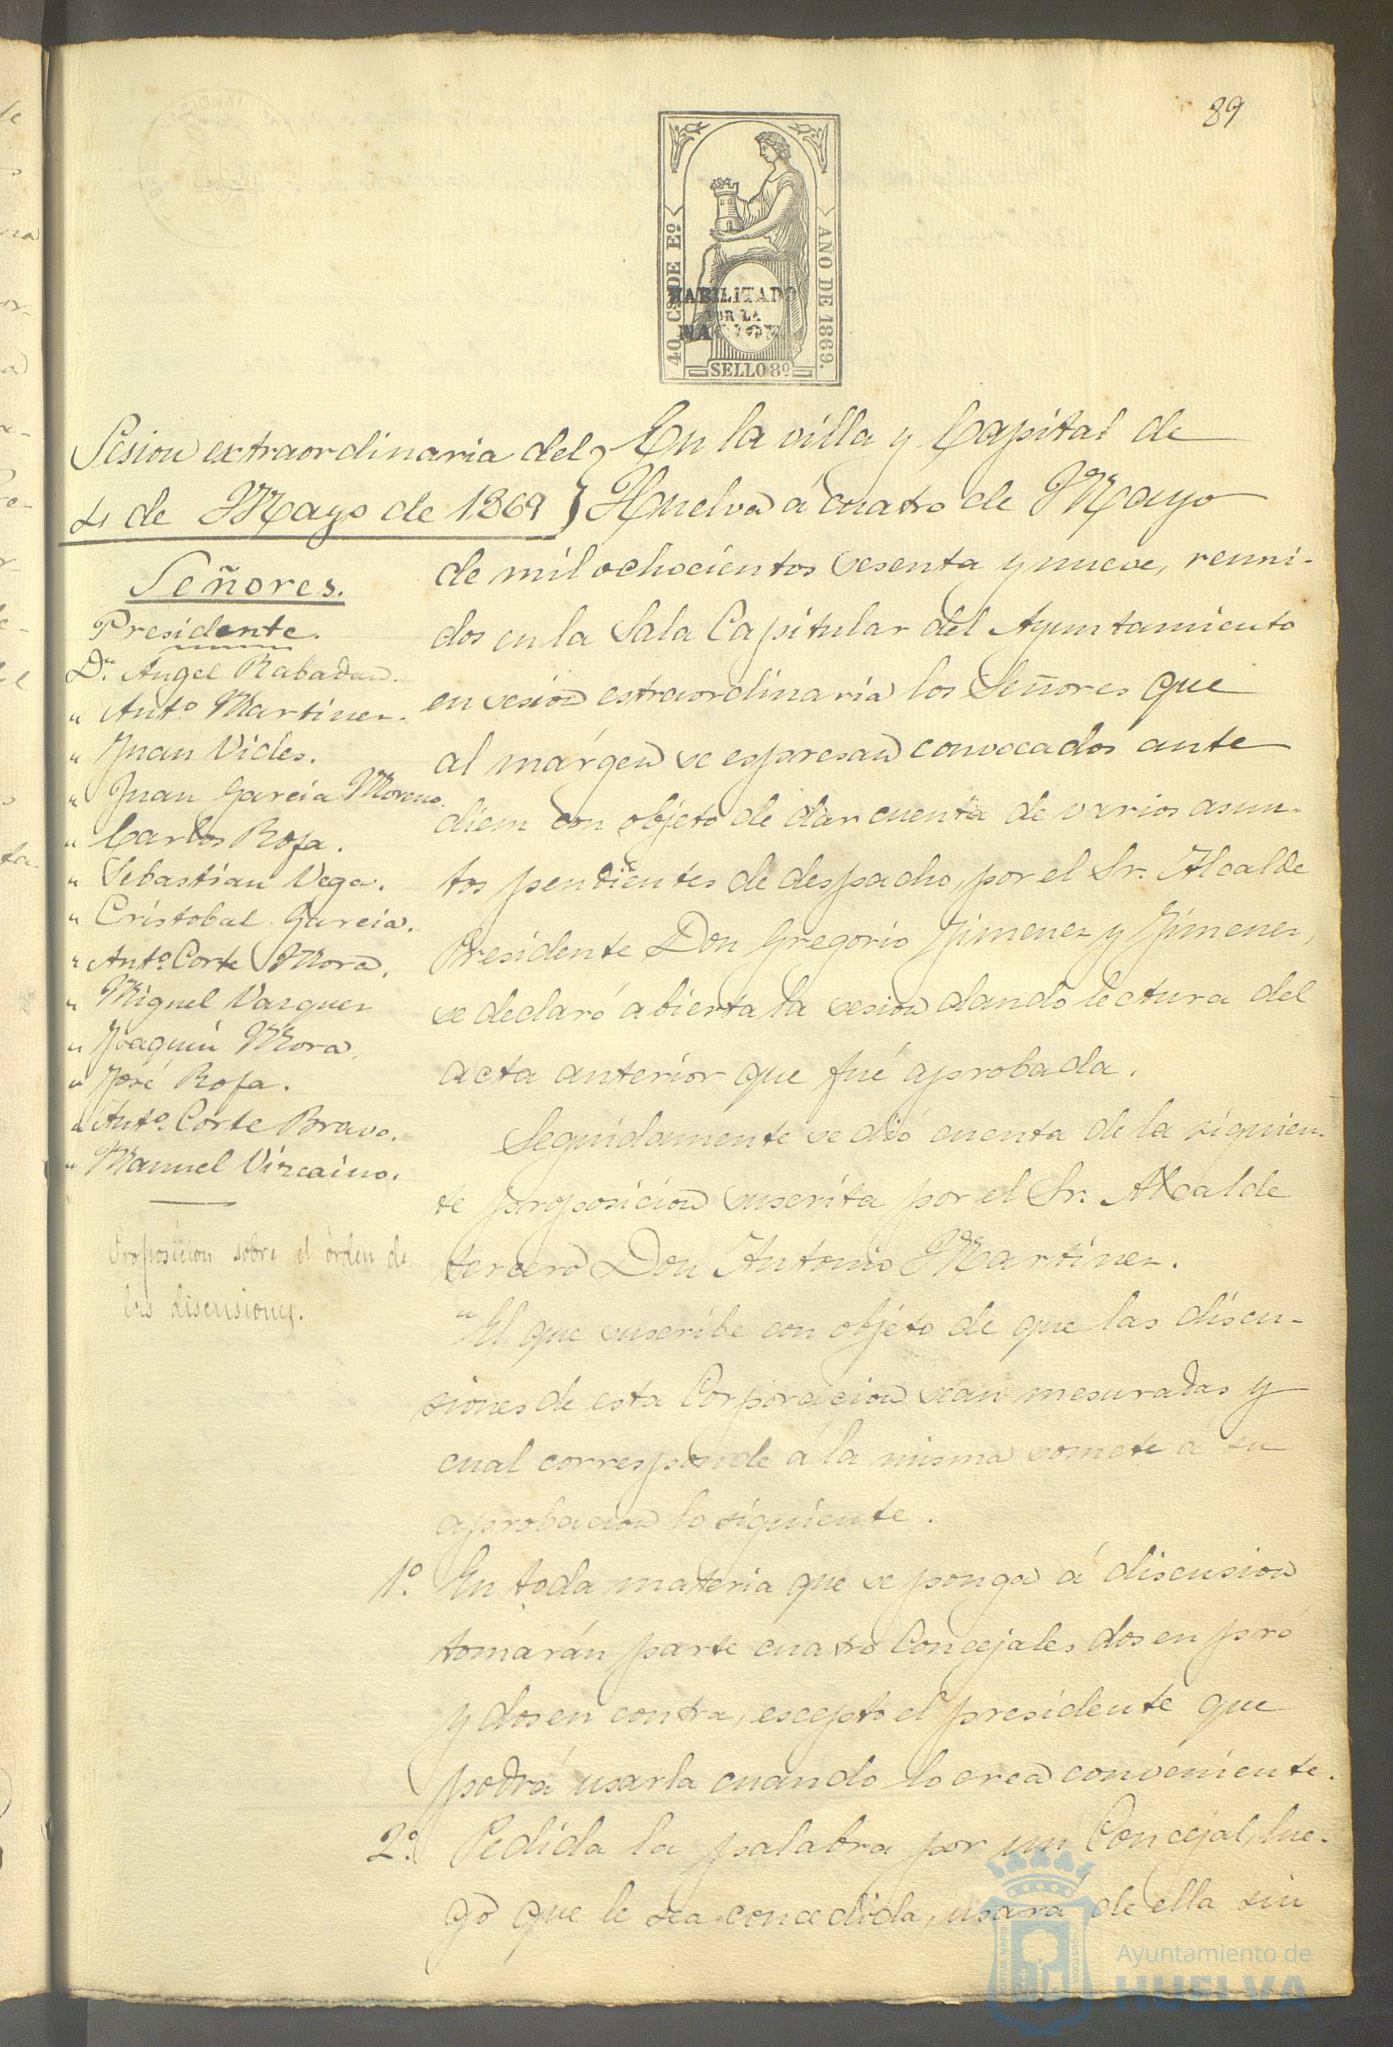 89
40 CS. DE Eº
AÑO DE 1869.
HABILITADO
POR LA
NACION
SELLO 8º
Sesion extraordinaria del
4 de Mayo de 1869
Señores.
Presidente.
Dn. Angel Rabadan.
" Antº Martinez.
" Juan Vides.
" Juan Garcia Moreno.
" Carlos Rofa.
" Sebastian Vega.
" Cristobal Garcia.
" Antº Corte Mora.
" Miguel Vazquez
" Joaquin Mora.
" José Rofa.
" Antº Corte Bravo.
" Manuel Vizcaino.
Proposicion sobre el órden de
las discusiones.
En la villa y Capital de
Huelva á cuatro de Mayo
de mil ochocientos sesenta y nueve, reuni-
dos en la Sala Capitular del Ayuntamiento
en sesion estraordinaria los Señores que
al márgen se espresan convocados ante
diem con objeto de dar cuenta de varios asun-
tos pendientes de despacho, por el Sr. Alcalde
Presidente Don Gregorio Jimenez y Jimenez,
se declaró abierta la sesion dando lectura del
acta anterior que fué aprobada.
Seguidamente se dió cuenta de la siguien-
te proposicion suscrita por el Sr. Alcalde
tercero Don Antonio Martinez.
"El que suscribe con objeto de que las discu-
siones de esta Corporacion sean mesuradas y
cual corresponde á la misma somete á su
aprobacion lo siguiente.
1º. En toda materia que se ponga á discusion
tomarán parte cuatro Concejales dos en pró
y dos en contra, escepto el presidente que
podrá usarla cuando lo crea conveniente.
2º. Pedida la palabra por un Concejal, lue-
go que le sea concedida, usará de ella sin
Ayuntamiento de
HUELVA